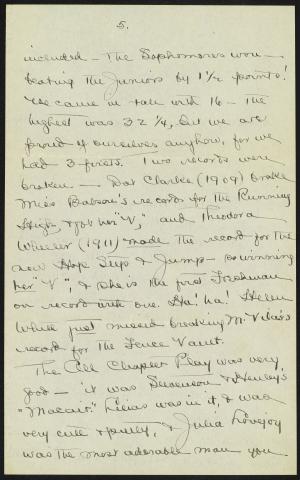 5.
included – The Sophomores won –
beating the Juniors by 1 1/2 points!
We came in    with 16 – the
highest was 32 1/4, but we are
proud of ourselves anyhow, for we
had 3 firsts. Two records were
broken – Dot Clarke (1909) broke
Miss Babson's records for the Running
High, & got her "V," and Theodora
Wheeler (1911) made the record for the
new Hop Step & Jump – so winning
her "V", & she is the first Freshman
on record with one. Ha! ha! Helen
White just missed breaking M. Vilas's
record for the Fence Vault.
The All Chapter Play was very
good – it was Stevenson & Henley's
"Macaire."    was in it, & was
very cute & pretty, & Julia Lovejoy
was the most adorable man you